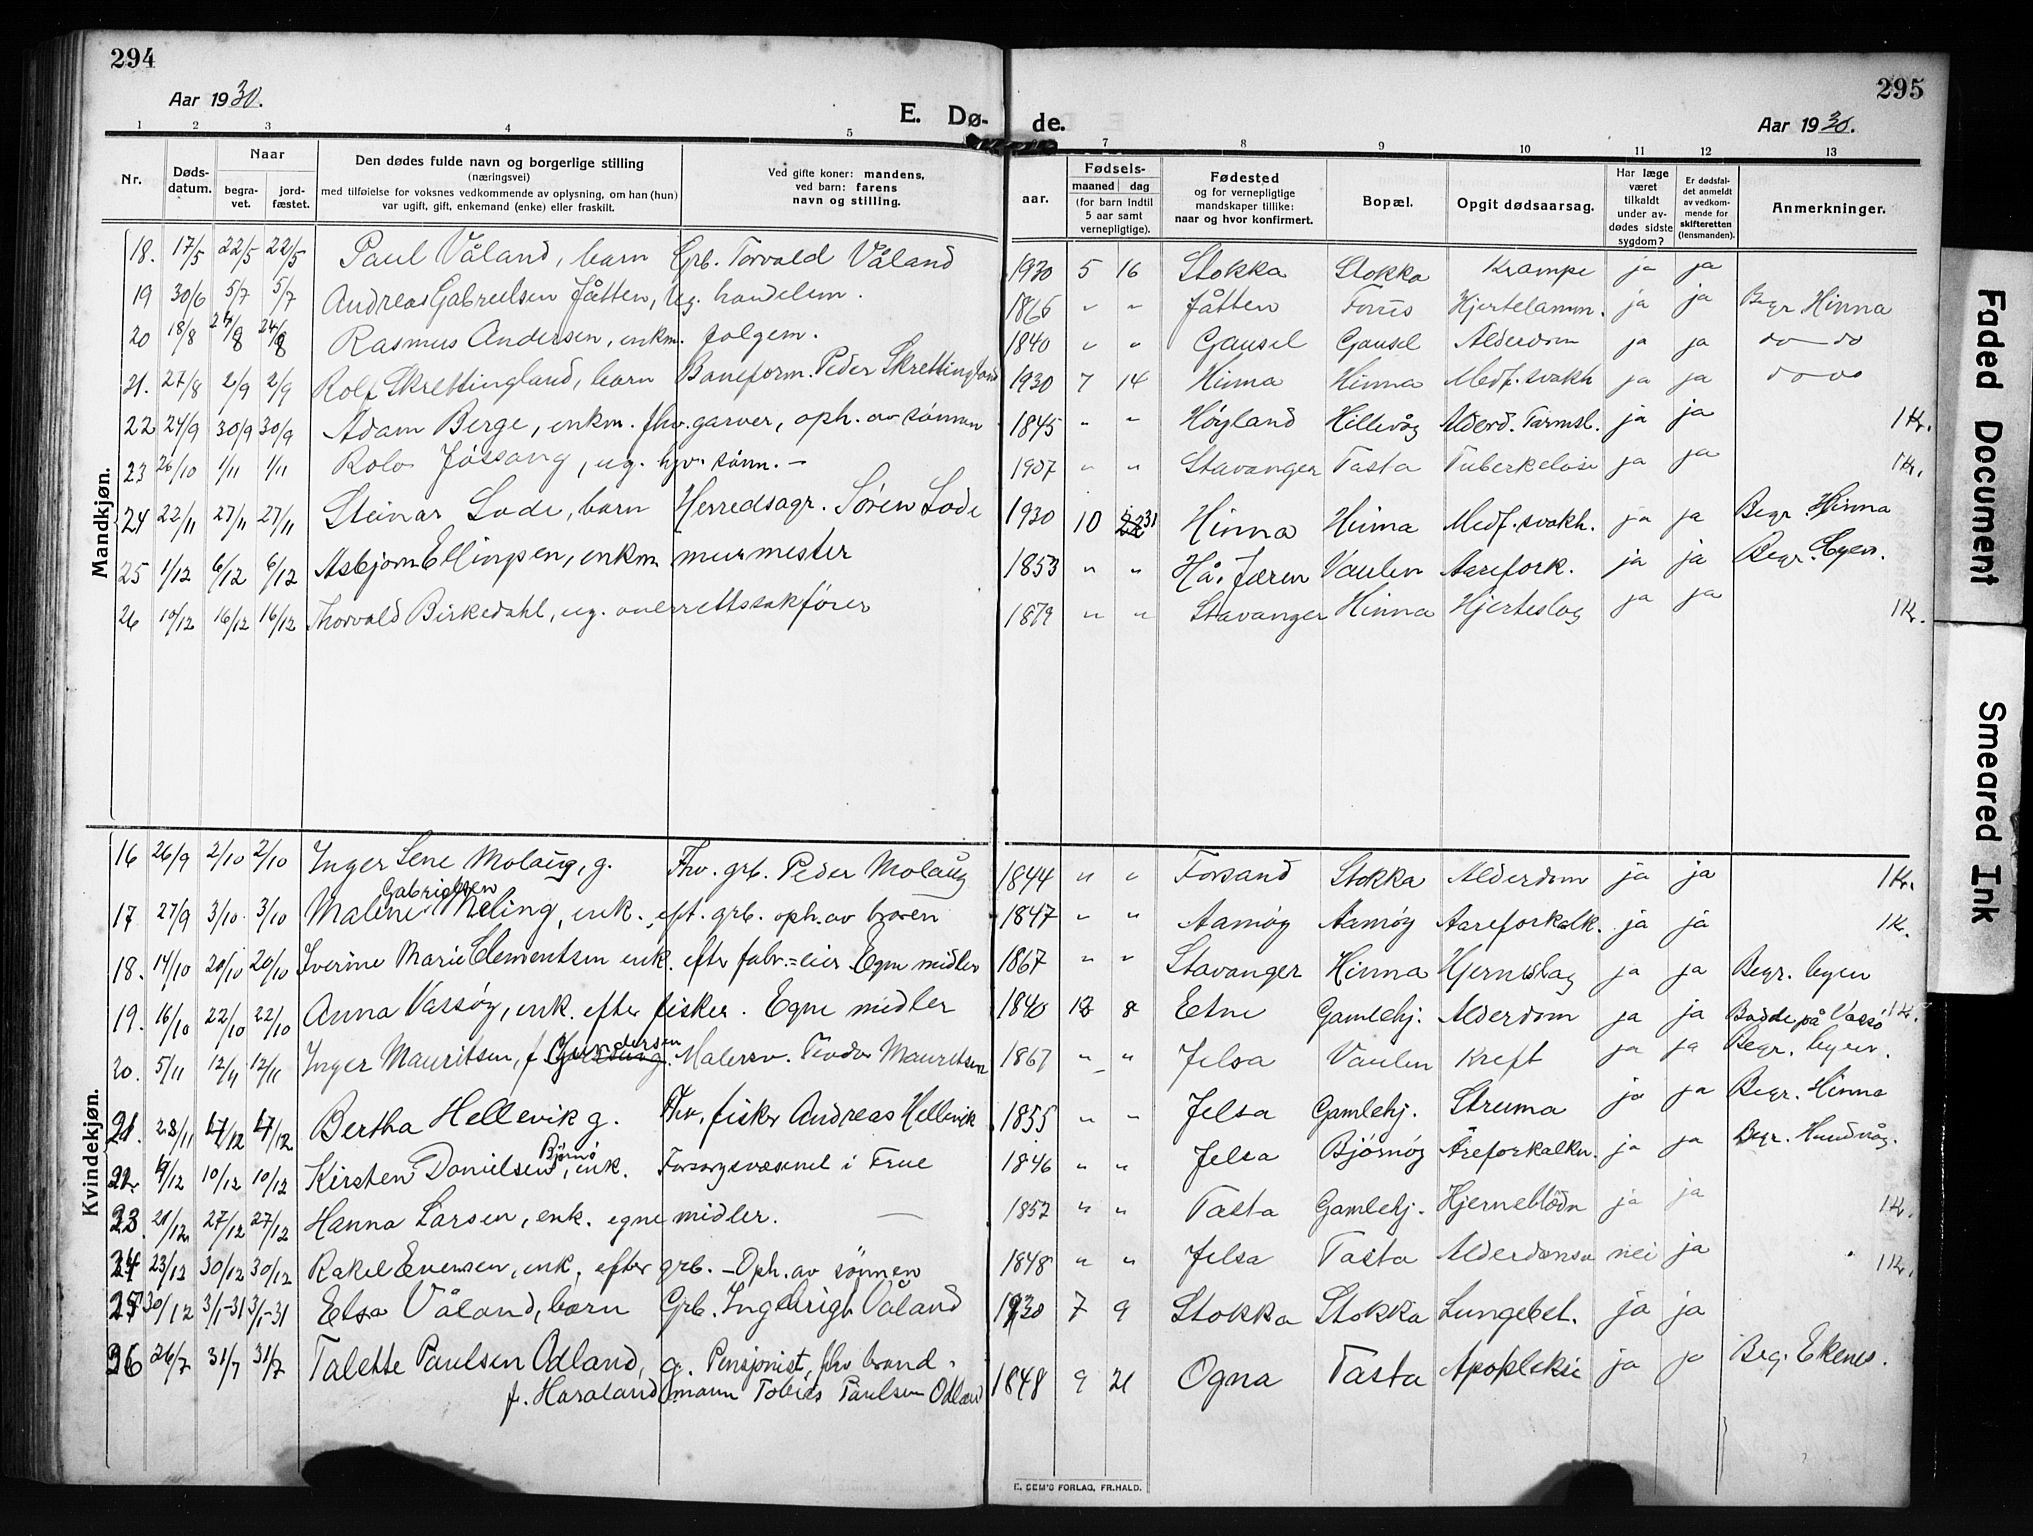 294
Aar 1930.
E. Dø-
1 2 3 4 5
Nr.
Døds-datum.
Naar
begra-vet.
jord-fæstet.
Den dødes fulde navn og borgerlige stilling
(næringsvei)
med tilføielse for voksnes vedkommende av oplysning, om han (hun)
var ugift, gift, enkemand (enke) eller fraskilt.
Ved gifte koner: mandens,
ved barn: farens
navn og stilling.
Mandkjøn.
18. 17/5 22/5 22/5 Paul Våland, barn Grb. Torvald Våland
19 30/6 5/7 5/7 Andreas Gabrielsen Jåtten, ug. handelsm.
20 18/8 24/8 24/8 Rasmus Andersen, enkm. folgem.
21. 27/8 2/9 2/9 Rolf Skrettingland, barn Baneform. Peder Skrettingland
22 24/9 30/9 30/9 Adam Berge, enkm. fhv. garver, oph. av sønnen
23 26/10 1/11 1/11 Rolv Jøssang, ug. hjv. sønn. -
24 22/11 27/11 27/11 Steinar Lode, barn Herredsagr. Søren Lode
25 1/12 6/12 6/12 Asbjørn Ellingsen, enkm murmester
26 10/12 16/12 16/12 Thorvald Birkedahl, ug. overrettssakfører
Kvindekjøn.
16 26/9 2/10 2/10 Inger Lene Molaug, g. Fhv. grb. Peder Molaug
Gabrielsen
17 27/9 3/10 3/10 Malene Meling, enk. eft. grb. oph. av broren
18. 14/10 20/10 20/10 Iverine Marie Clementsen enk. efter fabr.=eier Egne midler
19. 16/10 22/10 22/10 Anna Vassøy, enk. efter fisker. Egne midler
20. 5/11 12/11 12/11 Inger Mauritsen, f. Malersv. Teodor Mauritsen
21. 28/11 4/12 4/12 Bertha Hellevik g. Fhv. fisker Andreas Hellevik
22. 4/12 10/12 10/12 Kirsten Danielsen Bjørnø, enk. Forsorgsvæsenet i
23. 21/12 27/12 27/12 Hanna Larsen, enk. egne midler.
24 23/12 30/12 30/12 Rakel Evensen, enk. efter grb. - Oph. av sønnen
25 30/12 3/1-31 3/1-31 Elsa Våland, barn Grb. Ingebrigt Våland
26 26/7 31/7 31/7 Talette Paulsen Odland, g. Pensjonist, fhv brand-
f. Haraland mann Tobias Paulsen Odland
295
de.
Aar 1930.
7 8 9 10 11 12 13
aar.
Fødsels-
maaned dag
(for barn indtil
5 aar samt
vernepligtige).
Fødested
og for vernepligtige
mandskaper tillike:
naar og hvor konfirmert.
Bopæl.
Opgit dødsaarsag.
Har læge
været
tilkaldt
under av-
dødes sidste
sygdom?
Er dødsfal-
det anmeldt
av vedkom-
mende for
skifteretten
(lensmanden).
Anmerkninger.
1930 5 16 Stokka Stokka Krampe ja ja
1865 " " Jåtten Forus Hjertelamm. ja ja Begr Hinna
1840 " " Gausel Gausel Alderdom ja ja do do
1930 7 14 Hinna Hinna Medf. svakh ja ja do do
1845 " " Høyland Hillevåg Alderd. Tarmsl. ja ja 1 Kr.
1907 " " Stavanger Tasta Tuberkelose ja ja 1 Kr.
1930 10 22 31 Hinna Hinna Medf. svakh. ja ja Begr. Hinna
1853 " " Hå, Jæren Vaulen Aarefork. ja ja Begr. byen.
1879 " " Stavanger Hinna Hjerteslag ja ja 1 Kr.
1844 " " Forsand Stokka Alderdom ja ja 1 Kr.
1847 " " Aamøy Aamøy Aareforkalk. ja ja 1 Kr.
1867 " " Stavanger Hinna Hjerneslag ja ja Begr. byen
1840 12 8 Etne Gamlehj. Alderdom ja ja Bodde på Vassø 1 Kr.
1867 " " Jelsa Vaulen Kreft ja ja Begr. byen.
1855 " " Jelsa Gamlehj. Struma ja ja Begr. Hinna
1846 " " Jelsa Bjørnøy Åreforkalkn. ja ja Begr. Hundvåg.
1852 " " Tasta Gamlehj. Hjerneblødn ja ja 1 Kr.
1848 " " Jelsa Tasta nei ja 1 Kr.
1930 7 9 Stokka Stokka Lungebet. ja ja
1848 9 21 Ogna Tasta Apopleksi ja ja Begr. Ekenes.
E. SEM'S FORLAG, FR.HALD.
Faded Document
Smeared Ink